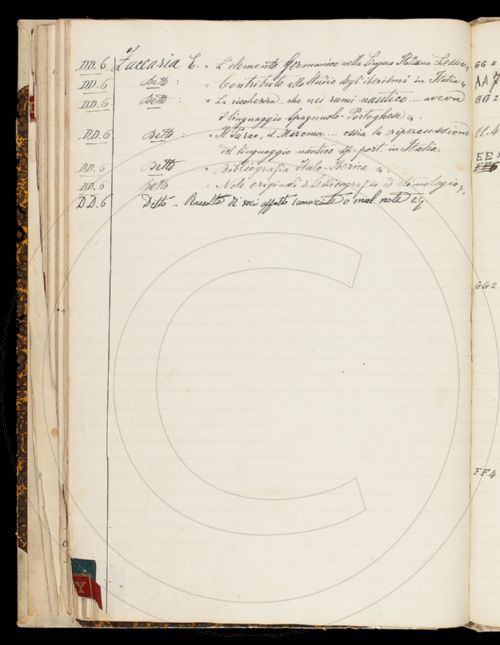 DD. 6 Zaccaria E. " L'elemento germanico nella lingua Italiana. Lessico.
DD. 6 Detto : " Contributo allo studio degl'iberismi in Italia "
DD. 6 Detto : " La ricchezza che nei rami nautico ... ancora
il linguaggio Spagnuolo-Portoghese ".
DD. 6 Detto : " Il ... ossia la ripercussione
del linguaggio nautico sp.-port. in Italia.
DD. 6 Detto " Bibliografia Italo-Iberica ".
DD. 6 Detto " Note originali di lessicografia ed etimologia ".
DD. 6 Detto - Raccolta di voci affatto sconosciute o mal note "
GG 2
AA 7
GG 2
CC. 4
EE
EE 6
GG 2
FF 4